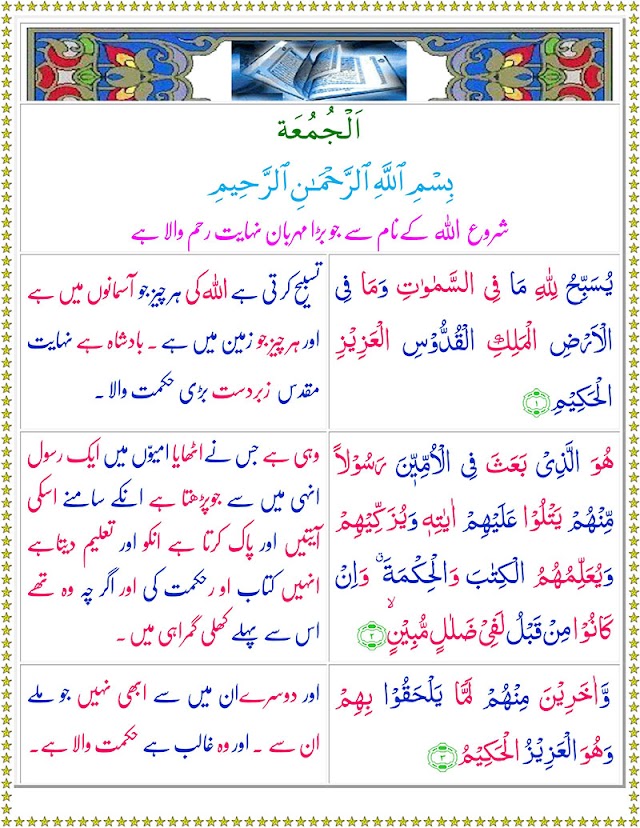 اَلْجُمُعَة
بِسْمِ ٱللَّهِ ٱلرَّحْمَـٰنِ ٱلرَّحِيمِ
شروع اللہ کے نام سے جو بڑا مہربان نہایت رحم والا ہے
یُسَبِّحُ لِلّٰهِ مَا فِی السَّمٰوٰتِ وَمَا فِی
الْاَرْضِ الْمَلِكِ الْقُدُّوْسِ الْعَزِیْزِ
الْحَكِیْمِ ﴿۱﴾
تسبیح کرتی ہے اللہ کی ہر چیز جو آسمانوں میں ہے
اور ہر چیز جو زمین میں ہے ۔ بادشاہ ہے نہایت
مقدس زبردست بڑی حکمت والا ۔
هُوَ الَّذِیْ بَعَثَ فِی الْاُمِّیّٖنَ رَسُوْلاً
مِّنْهُمْ یَتْلُوْا عَلَیْهِمْ اٰیٰتِهٖ وَیُزَكِّیْهِمْ
وَیُعَلِّمُهُمُ الْكِتٰبَ وَالْحِكْمَةَ ۗ وَاِنْ
كَانُوْا مِنْ قَبْلُ لَفِیْ ضَلٰلٍ مُّبِیْنٍ ۙ ﴿۲﴾
وہی ہے جس نے اٹھایا امیّوں میں ایک رسول
انہی میں سے جو پڑھتا ہے انکے سامنے اسکی
آیتیں اور پاک کرتا ہے انکو اور تعلیم دیتا ہے
انہیں کتاب او رحکمت کی اور اگر چہ وہ تھے
اس سے پہلے کھلی گمراہی میں ۔
وَّاٰخَرِیْنَ مِنْهُمْ لَمَّا یَلْحَقُوْا بِهِمْ
وَهُوَ الْعَزِیْزُ الْحَكِیْمُ ﴿۳﴾
اور دوسرے ان میں سے ابھی نہیں جو ملے
ان سے ۔ اور وہ غالب ہے حکمت والا ہے ۔